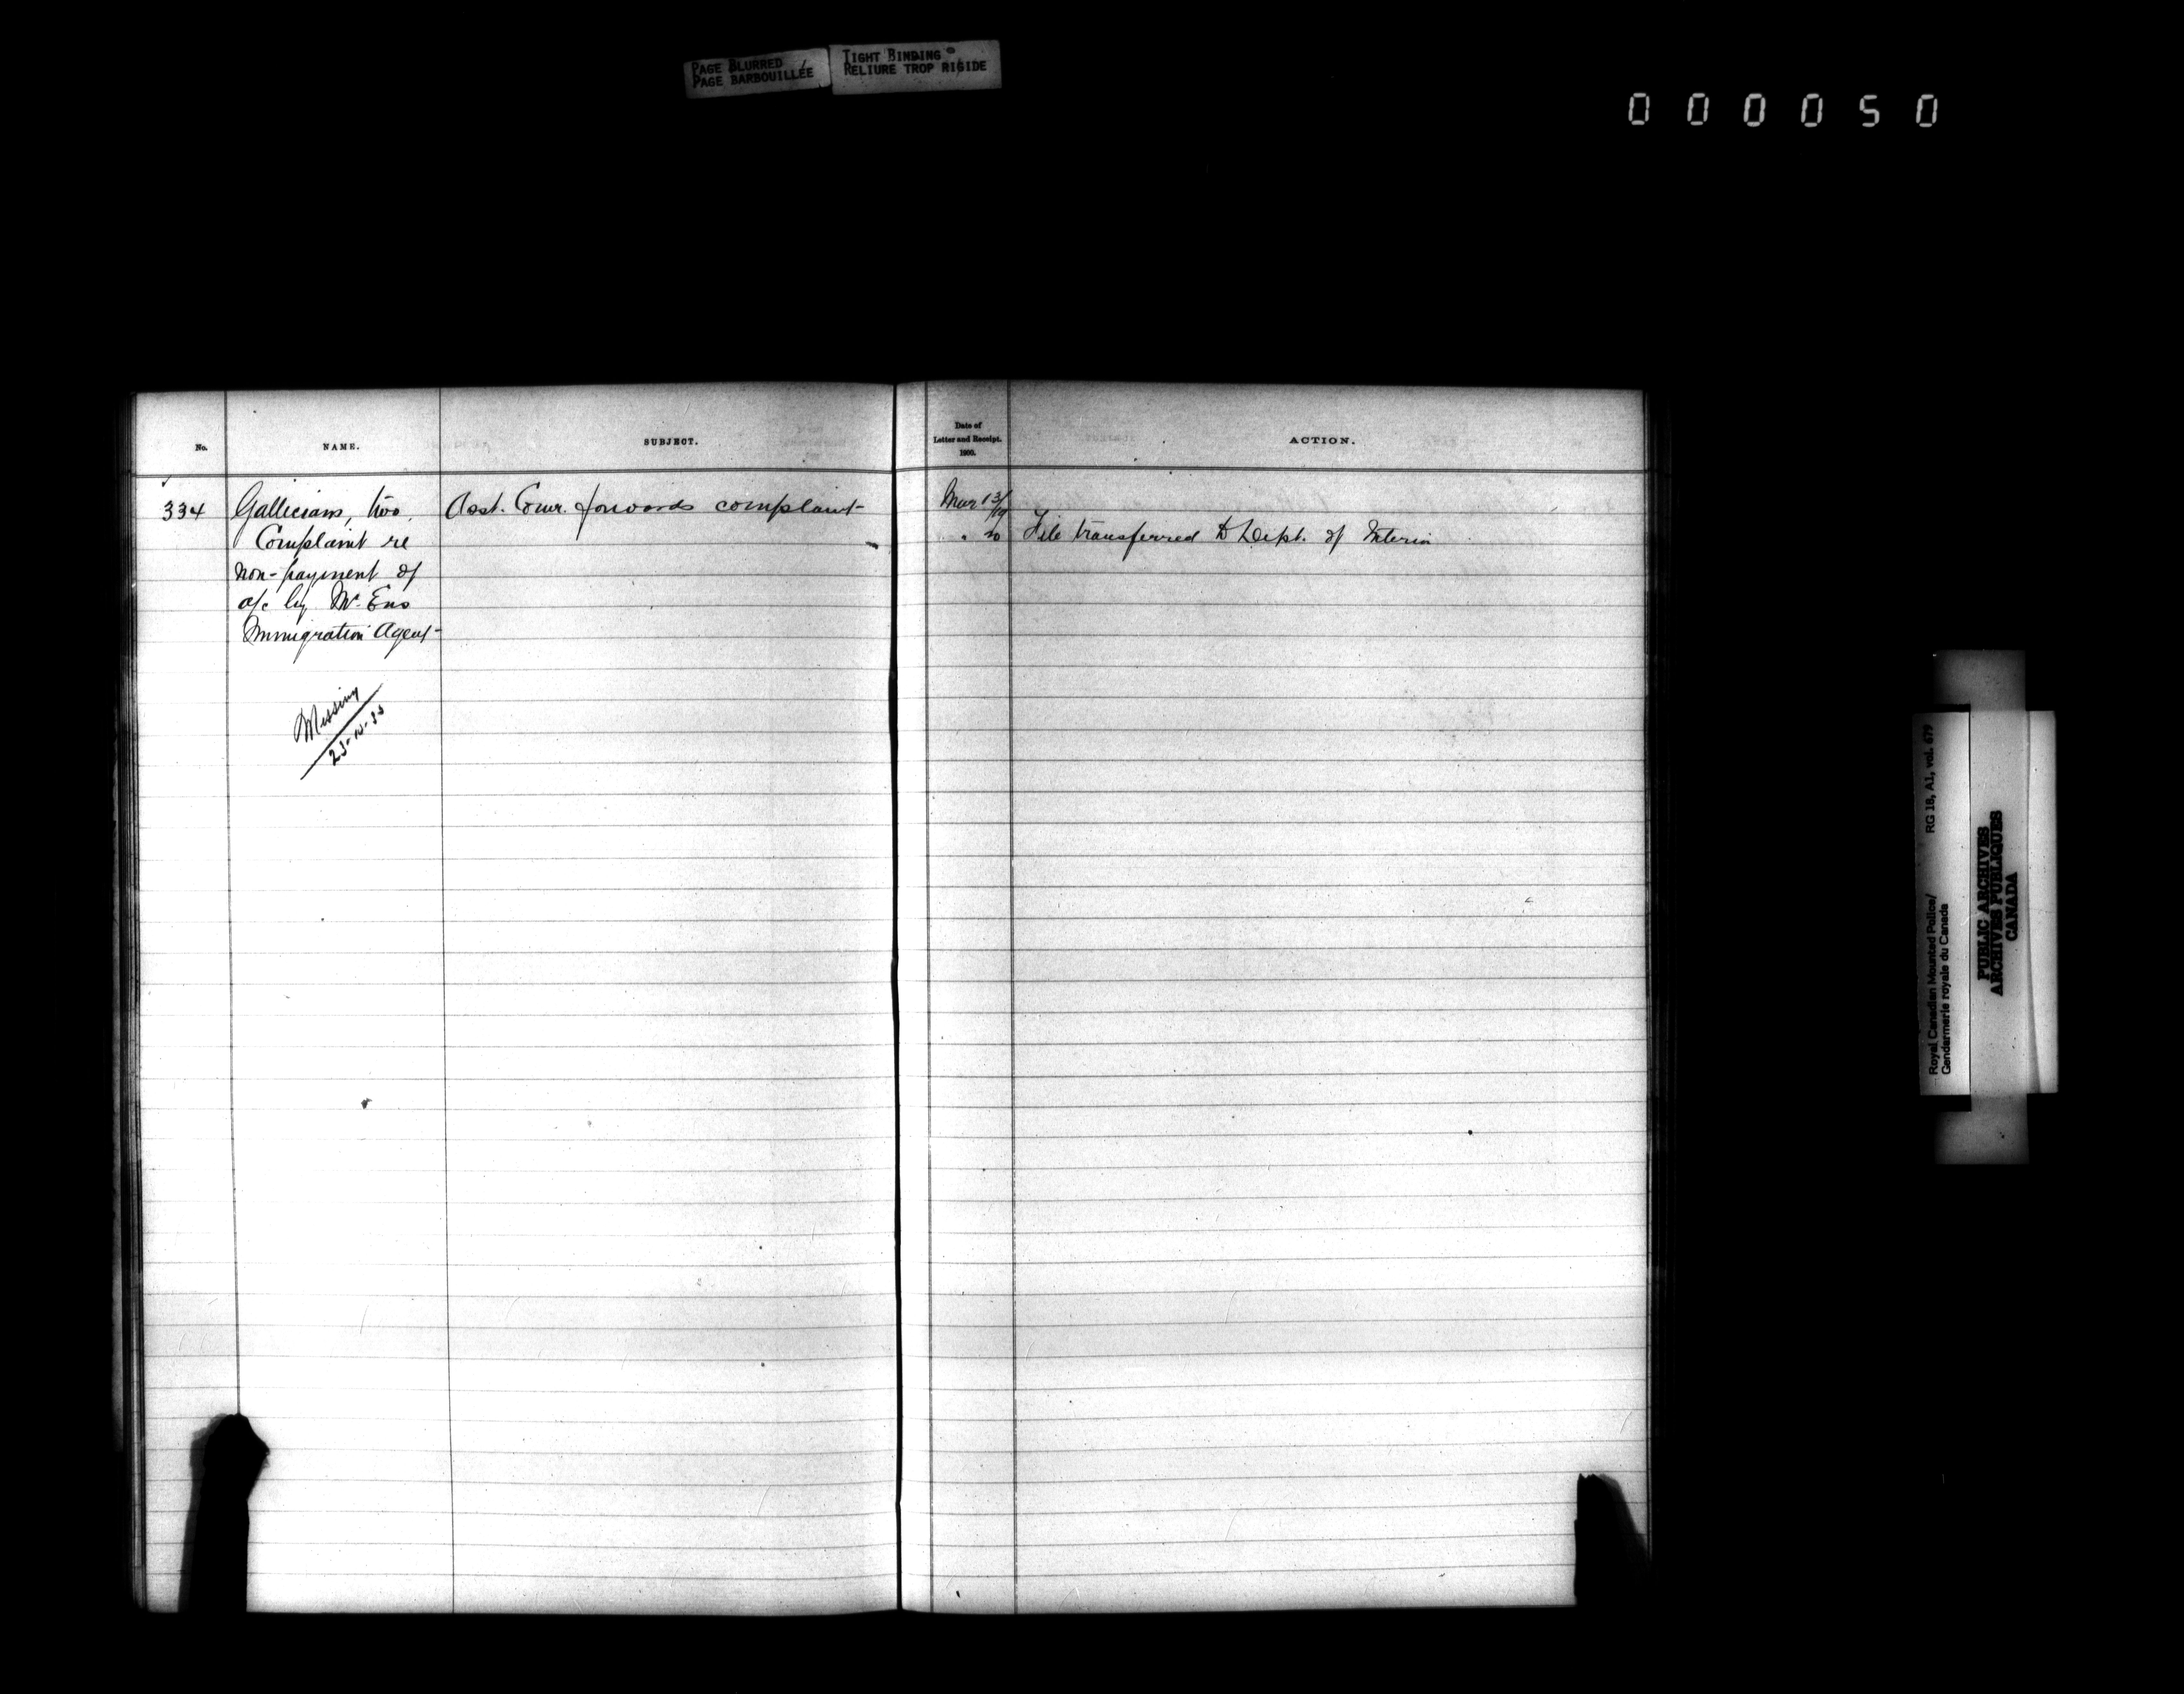 PAGE BLURRED
PAGE BARBOUILLÉE
TIGHT BINDING
RELIURE TROP RIGIDE
000050
No.
NAME.
SUBJECT.
Date of
Letter and Receipt.
1900.
ACTION.
334
Gallicians, two,
Complaint re
non-payment of
a/c by Mr. Ens
Immigration Agent
Asst. Comr. forwards complaint
Mar 13/19
" 20
File transferred to Dept. of Interior
Missing
Royal Canadian Mounted Police/
Gendarmerie royale du Canada
RG 18, A1, vol. 679
PUBLIC ARCHIVES
ARCHIVES PUBLIQUES
CANADA